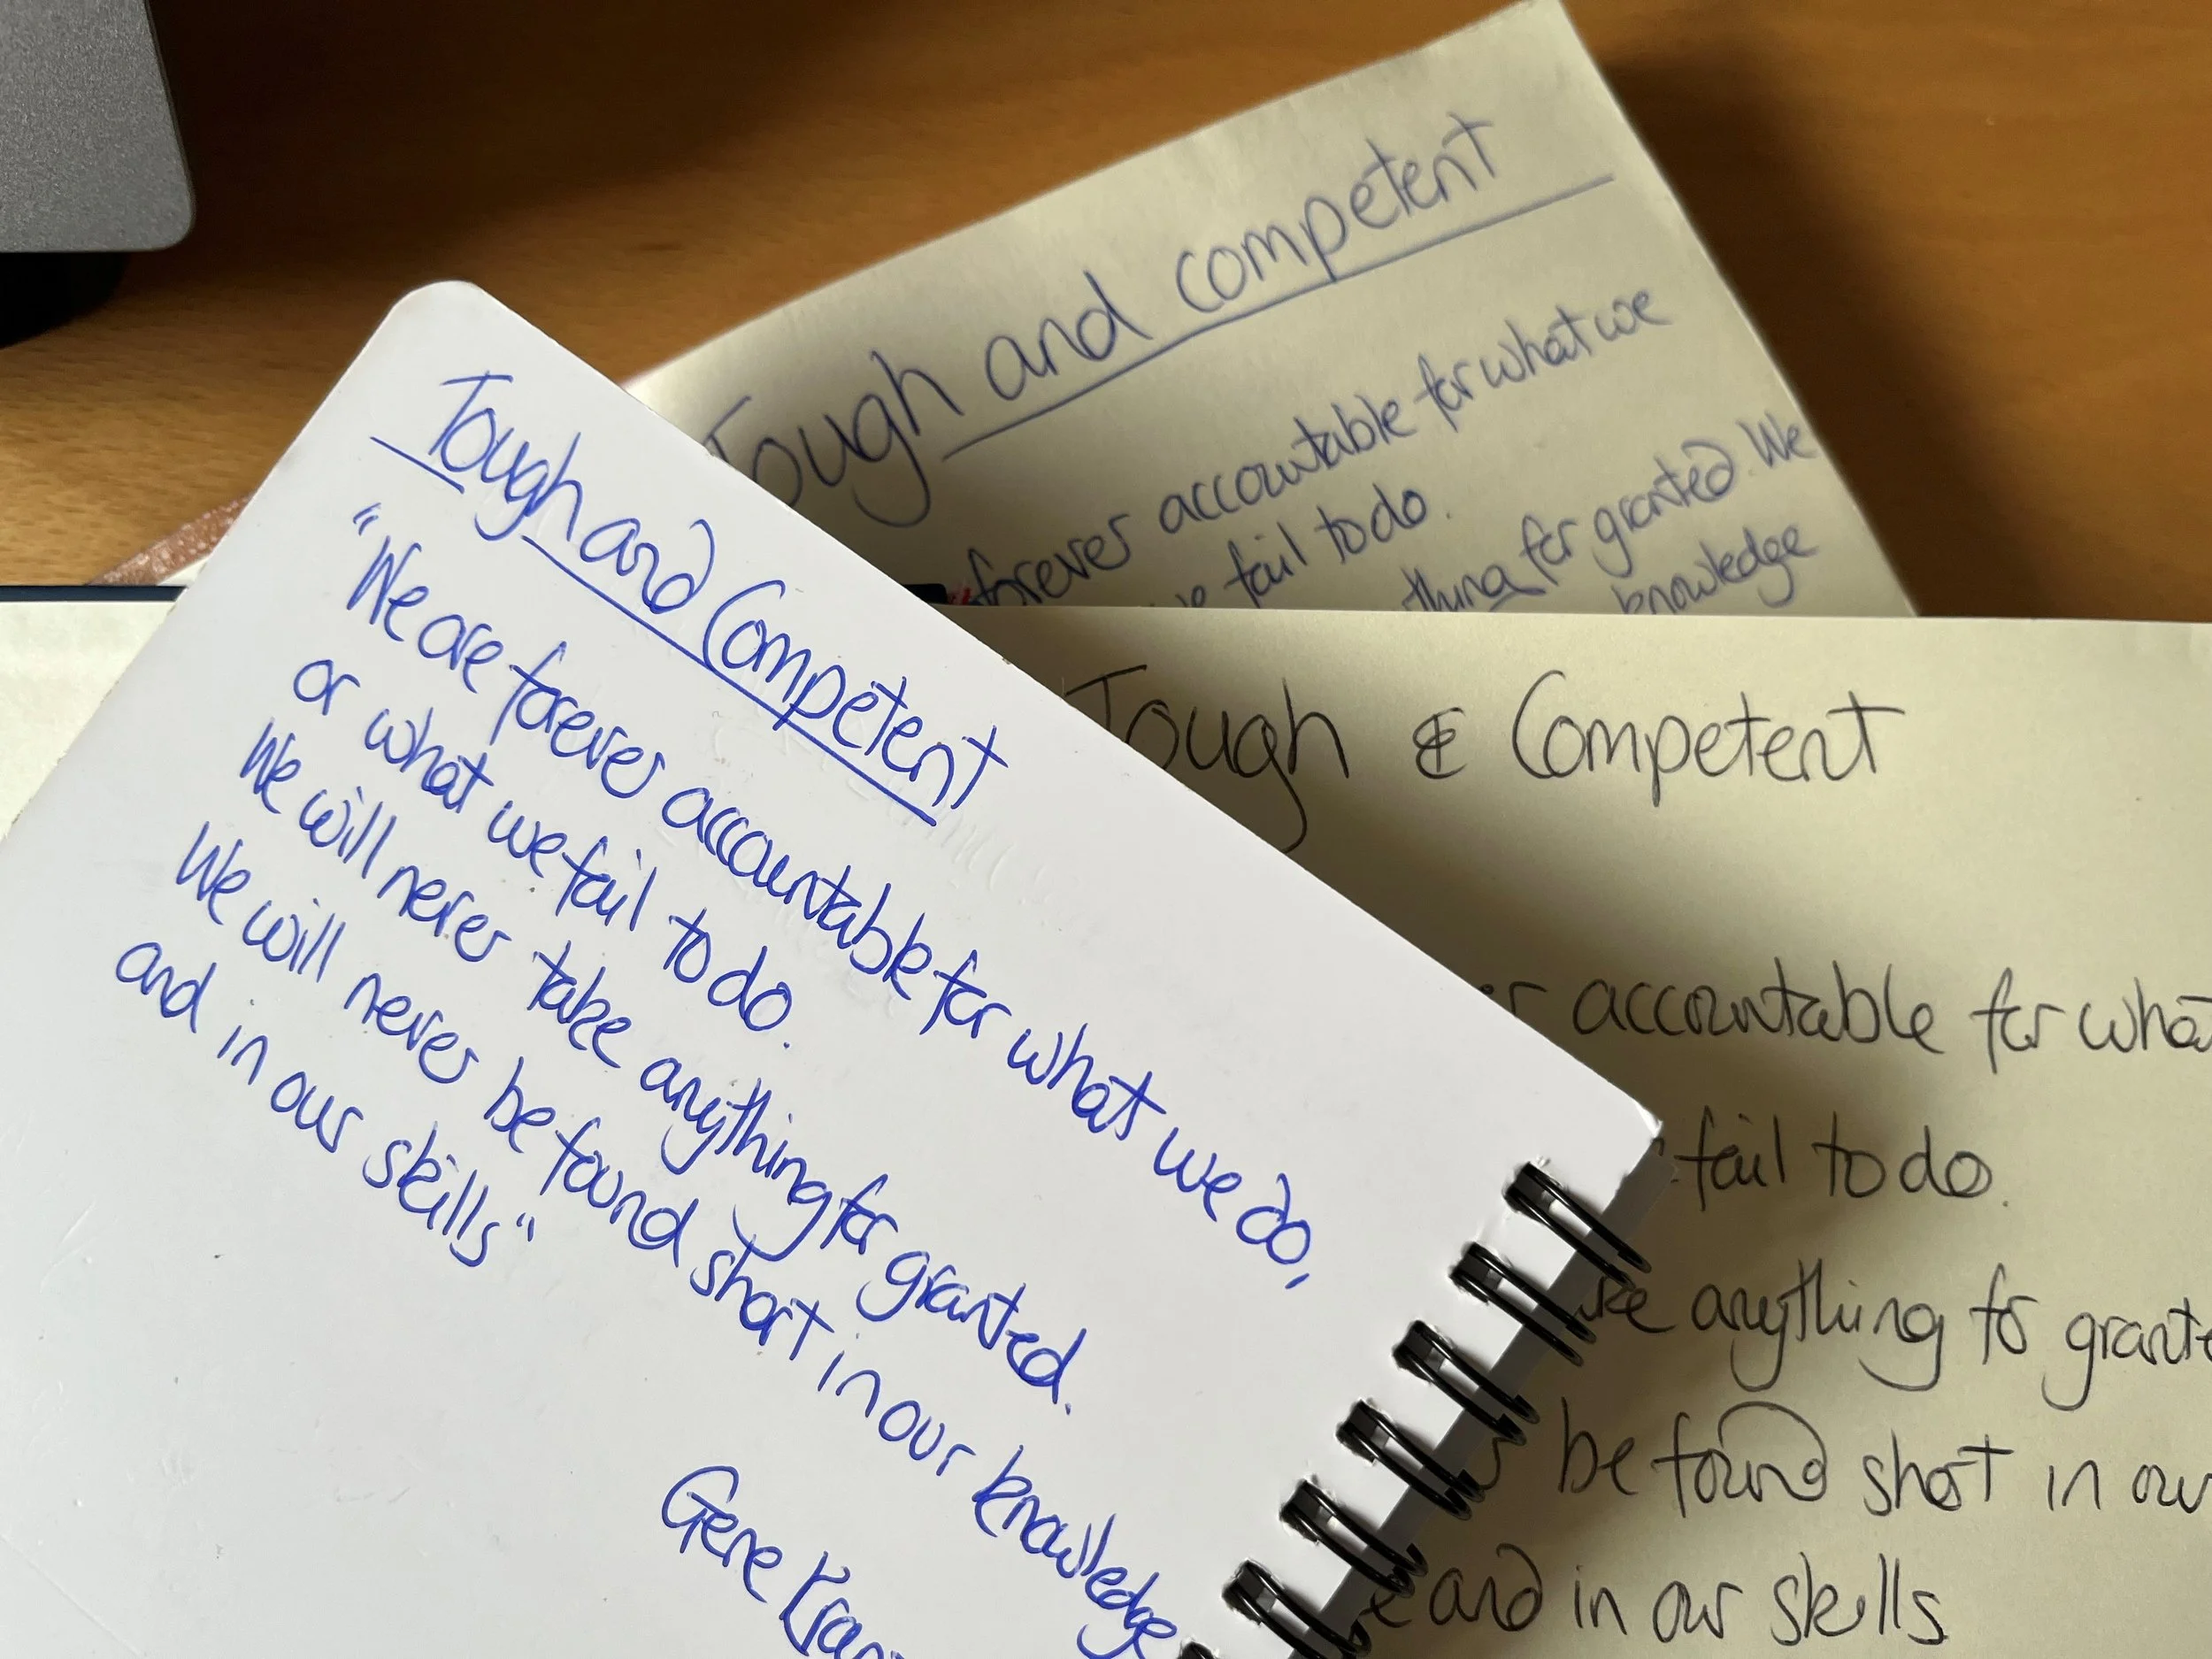 Tough and Competent
"We are forever accountable for what we do,
or what we fail to do.
We will never take anything for granted.
We will never be found short in our knowledge
and in our skills"
Gene
Tough and competent
forever accountable for what we
fail to do.
thing for granted. We
knowledge
Tough & Competent
accountable for what
fail to do.
anything for
be found short in our
and in our skills